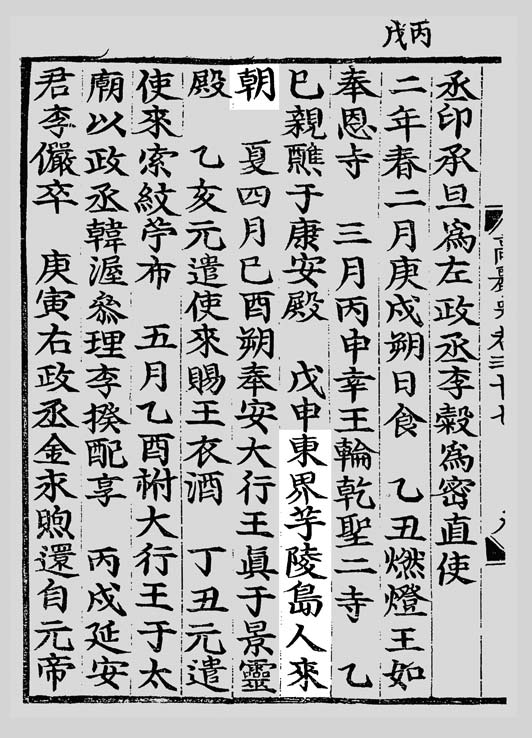 丙戌
丞印承旦爲左政丞李穀爲密直使
二年春二月庚戌朔日食 乙丑燃燈王如
奉恩寺 三月丙申幸王輪乾聖二寺 乙
巳親醮于康安殿 戊申東界芋陵島人來
朝 夏四月己酉朔奉安大行王眞于景靈
殿 乙亥元遣使來賜王衣酒 丁丑元遣
使來索紋苧布 五月乙酉祔大行王于太
廟以政丞韓渥叅理李揆配享 丙戌延安
君李儼卒 庚寅右政丞金永煦還自元帝